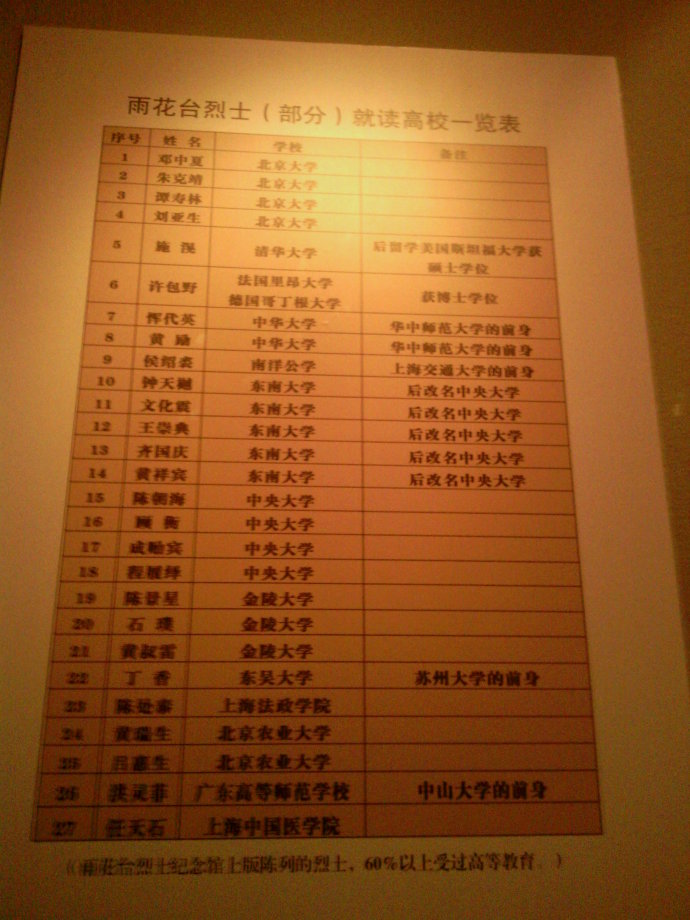 雨花台烈士（部分）就读高校一览表
序号 姓 名 学校 备注
1 邓中夏 北京大学
2 朱克靖 北京大学
3 谭寿林 北京大学
4 刘亚生 北京大学
5 施 滉 清华大学 后留学美国斯坦福大学获
硕士学位
6 许包野 法国里昂大学
德国哥丁根大学 获博士学位
7 恽代英 中华大学 华中师范大学的前身
8 黄 励 中华大学 华中师范大学的前身
9 侯绍裘 南洋公学 上海交通大学的前身
10 钟天樾 东南大学 后改名中央大学
11 文化震 东南大学 后改名中央大学
12 王崇典 东南大学 后改名中央大学
13 齐国庆 东南大学 后改名中央大学
14 黄祥宾 东南大学 后改名中央大学
15 陈朝海 中央大学
16 顾 衡 中央大学
17 成贻宾 中央大学
18 程履绎 中央大学
19 陈景星 金陵大学
20 石 璞 金陵大学
21 黄叔雷 金陵大学
22 丁 香 东吴大学 苏州大学的前身
23 陈处泰 上海法政学院
24 黄瑞生 北京农业大学
25 吕惠生 北京农业大学
26 洪灵菲 广东高等师范学校 中山大学的前身
27 任天石 上海中国医学院
（雨花台烈士纪念馆上版陈列的烈士，60%以上受过高等教育。）